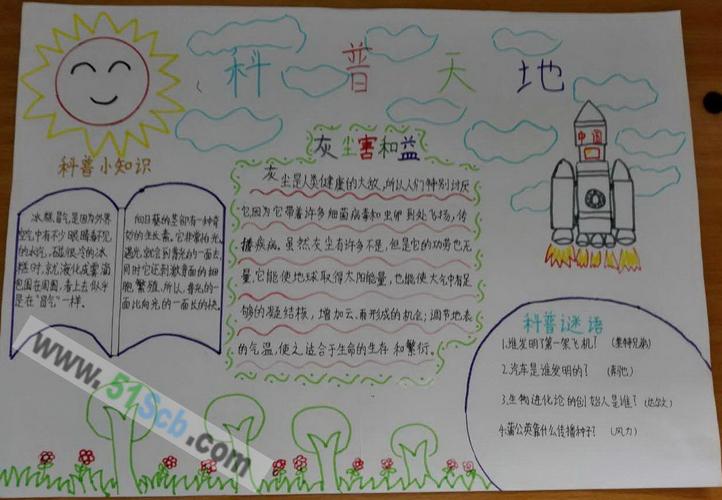 科普天地
中国
灰尘害和益
科普小知识
灰尘是人类健康的大敌,所以人们特别讨厌
它因为它带着许多细菌病毒和虫卵到处飞扬,传
播疾病。虽然灰尘有许多不是,但是它的功劳也无
量,它能使地球取得太阳能量,也能使大气中有足
够的凝结核,增加云、雨形成的机会;调节地表
的气温,使之适合于生命的生存和繁衍。
冰糕冒气是因为外界
空气中有不少眼睛看不见
的水汽,碰到很冷的冰
糕时,就液化成雾滴
包围在周围,看上去似乎
是在"冒气"一样。
向日葵的茎部有一种奇
妙的生长素。它非常怕光。
遇光就会到背光的一面去,
同时它还刺激背面的细
胞繁殖,所以,背光的一
面比向光的一面长的快。
科普谜语
1.谁发明了第一架飞机?(莱特兄弟)
2.汽车是谁发明的?
3.生物进化论的创始人是谁?(达尔文)
4.蒲公英靠什么传播种子?(风力)
www.51Scb.com